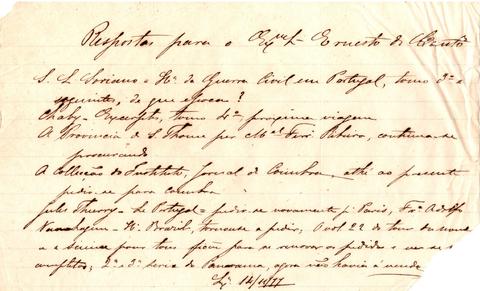 Respostas para o Exmo Sr Ernesto do Canto
S. L. Soriano = Ha. da Guerra Civil em Portugal, tomo 3º e
seguintes, de que epocas?
Chaby = Excerptos, tomo 4º, proxima viagem
A Provincia de S. Thomé por Mel. Ferr. Ribeiro, continua-se
procurando
A Collecção do Instituto, Jornal de Coimbra, athé ao presente
pedir-se para Coimbra
Jules Thierry = Le Portugal = pedir-se novamente p. Paris, Frco Adolfo
Varnhagem = H. Brazil, tornou-se a pedir, A vol 22 de
e para os pedidos
completos; 2ª e 3ª serie do Panorama, agora não havia á venda
Lx 14/11/77